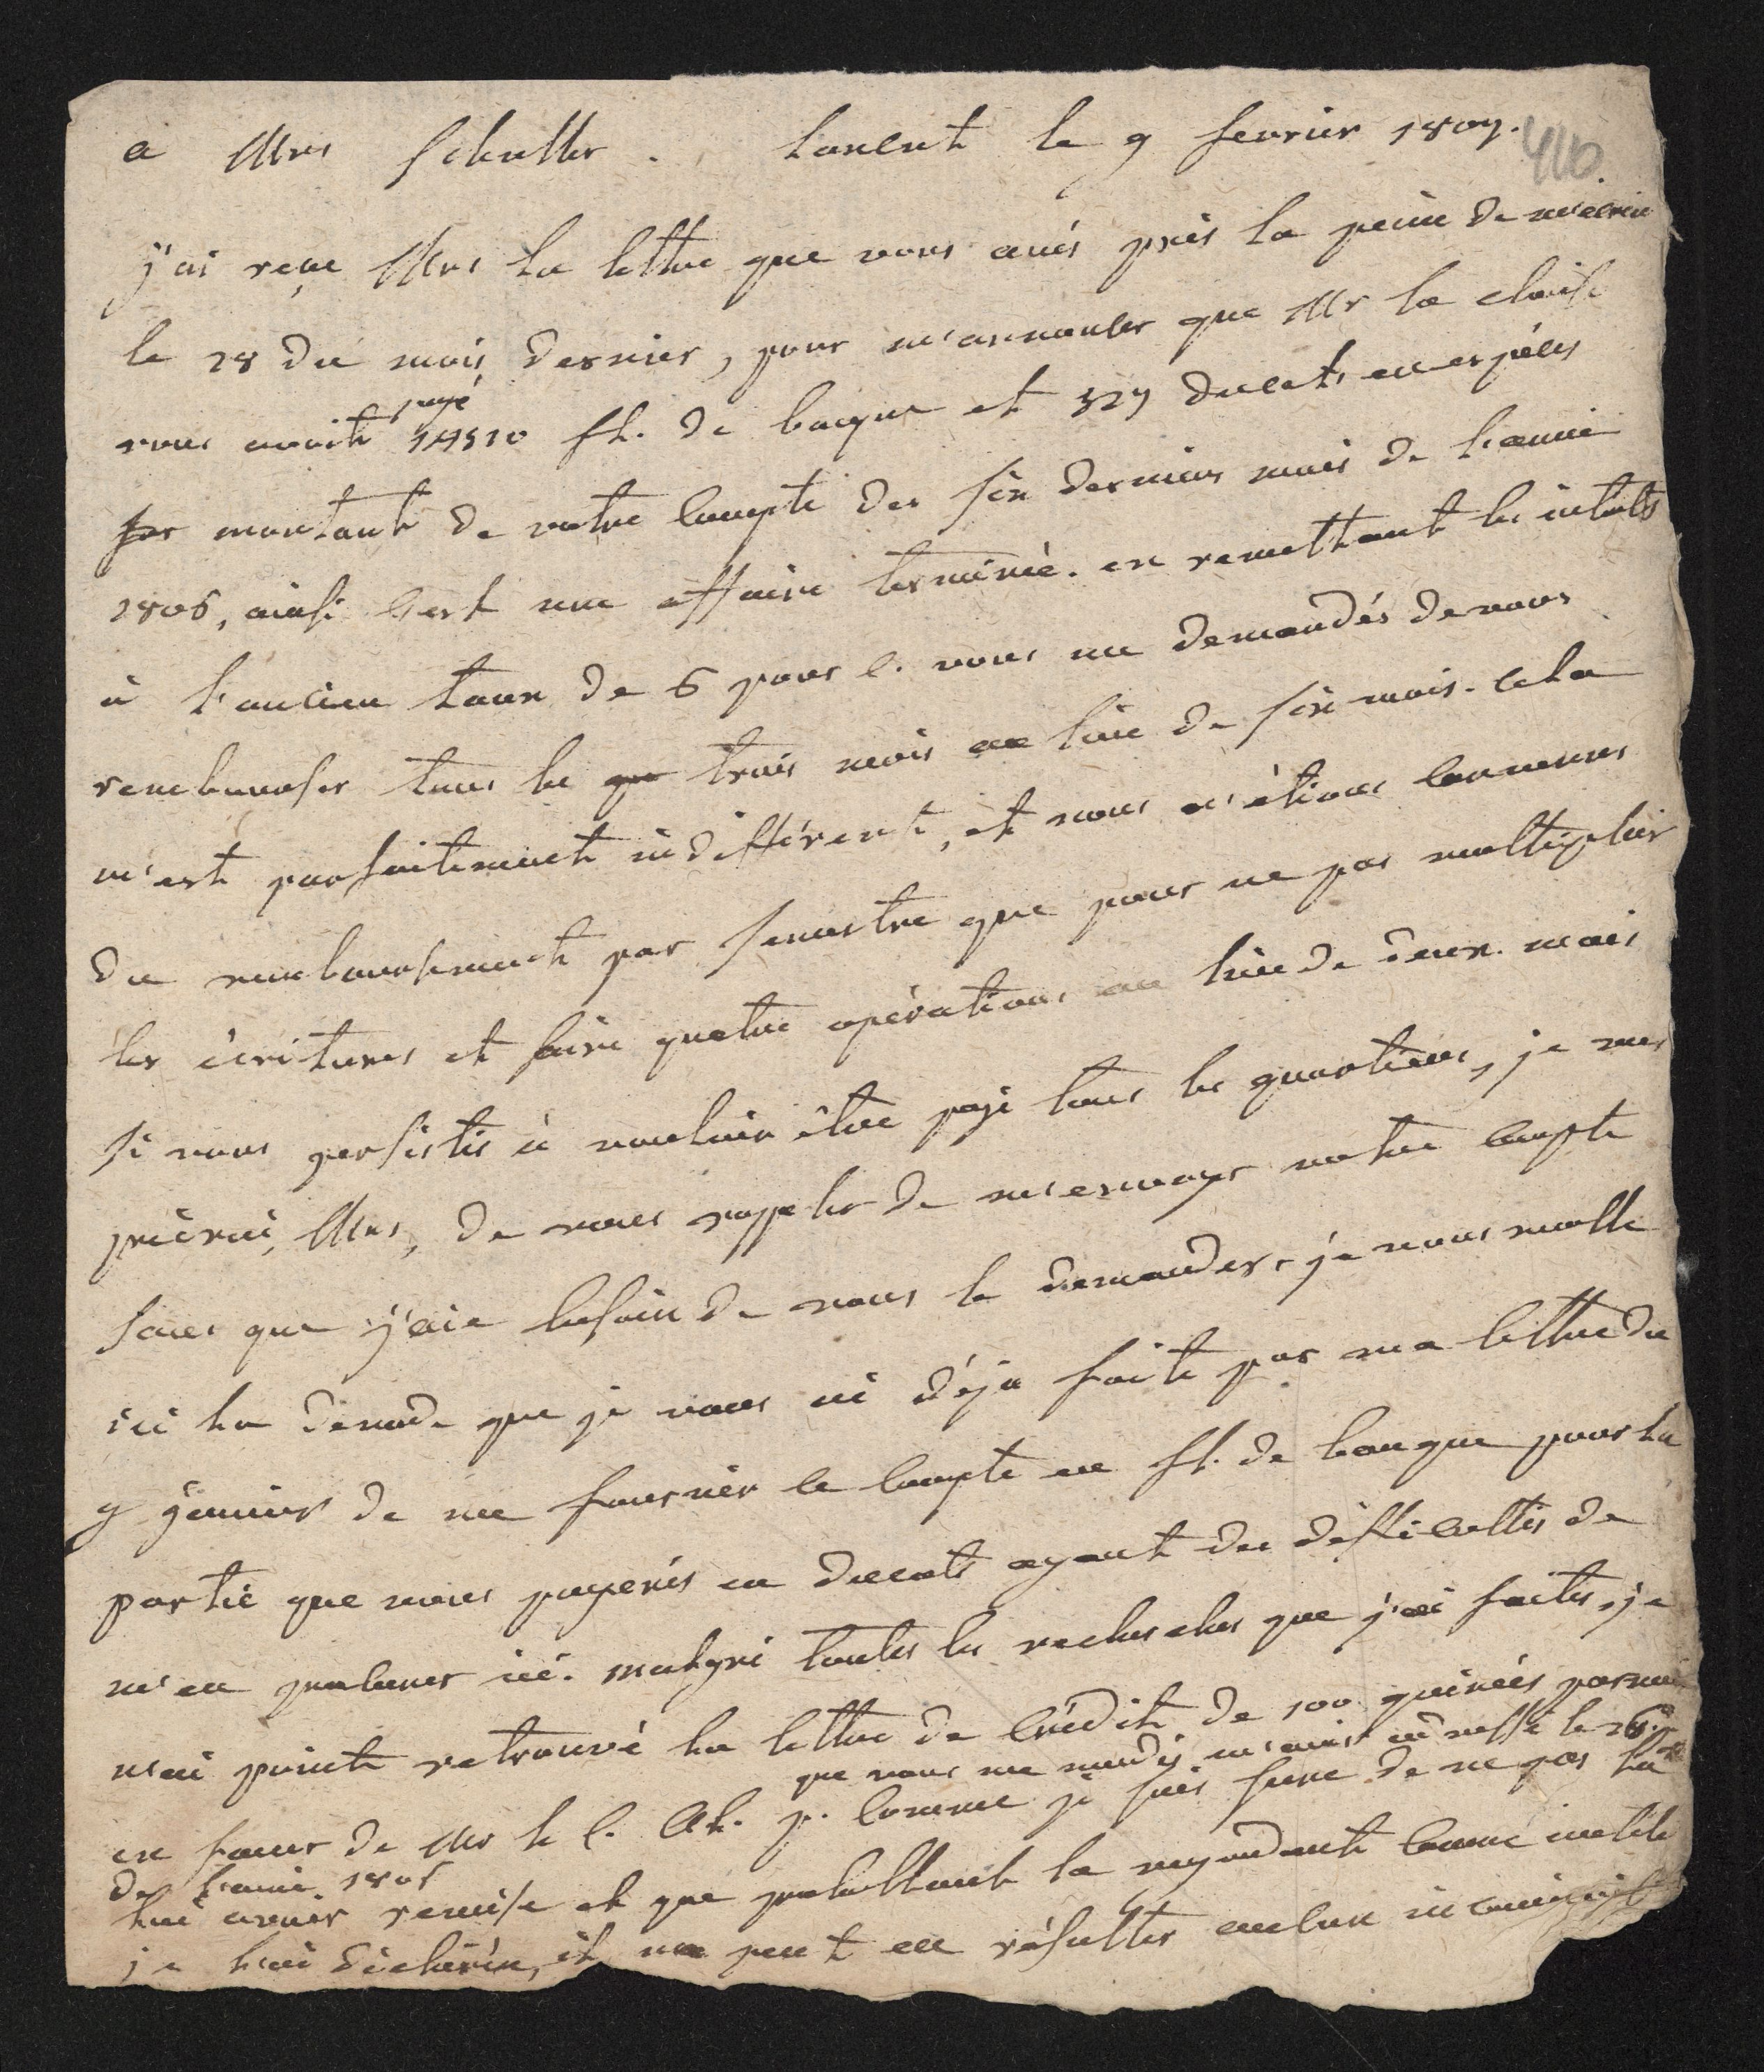 a Mrs Schuller. Lanent le 9 fevrier 1807.
410
j'ai reçue Mrs la lettre que vous avés pris la peine de m'ecrire
le 28 du mois dernier, pour m'annoncer que Mr la
payé
vous avoit fl. de banque et 327 ducats en espéces
montant de votre compte des six derniers mois de l'année
1806, ainsi c'est une affaire terminée. en remettant les intérêts
à l'ancien taux de 6 pour c. vous me demandés de vous
rembourser tous les trois mois au lieu de six mois. cela
m'est parfaitement indifférent, et nous n'étions convenus
du remboursement par semestre que pour ne pas multiplier
les écritures et faire quatre opérations au lieu de deux. mais
si vous persistés à vouloir être payé tous les quartiers, je vous
prierai, Mrs, de vous rappeler de m'envoyer votre compte
sans que j'aie besoin de vous le demander. je vous renouvelle
ici la demade que je vous ai déja faite par ma lettre du
9 janvier de me fournir le compte en fl. de banque pour la
partie que vous payerés en ducats ayant des difficultés de
m'en procurer ici. malgré toutes les recherches que j'ai faites, je
n'ai point retrouvé la lettre de crédit de 100 guinées par mois
que vous me mandés m'avoir adressé le 26
en faveur de Mr le C. Al. p. comme je suis sure de ne pas la
de l'année 1805
lui avoir remise et que probablement la regardant comme inutile
je l'ai déchirée, il ne peut en résulter aucun inconvénient